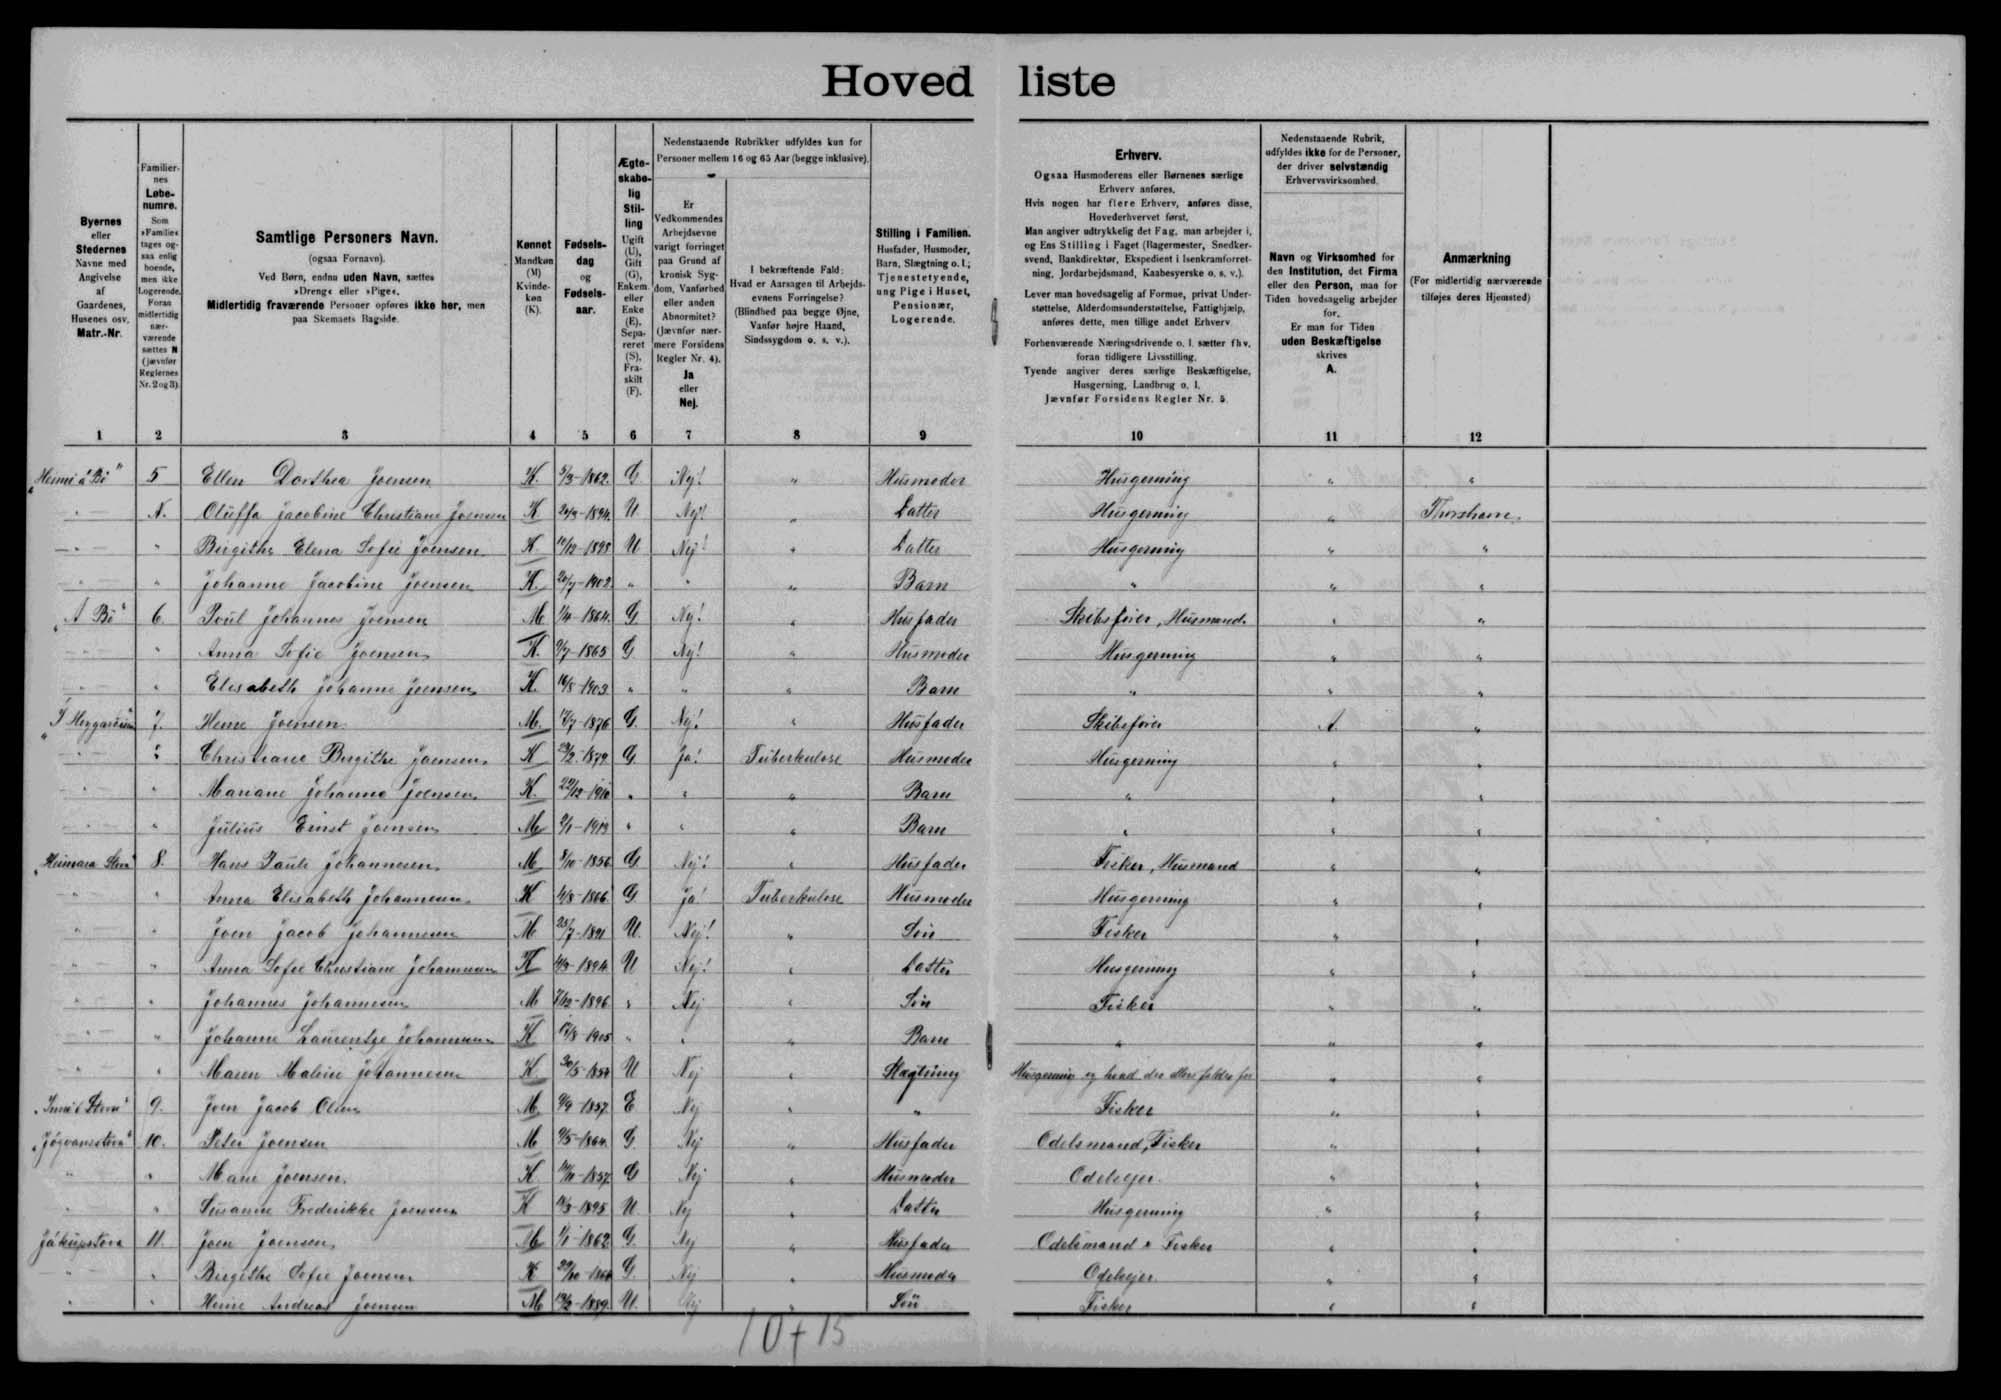 Hovedliste
Byernes
eller
Stedernes
Navne med
Angivelse
af
Gaardenes,
Husenes osv.
Matr.-Nr.
Familier-
nes
Løbe-
numre.
Som
»Familie«
tages og-
saa enlig
boende,
men ikke
Logerende.
Foran
midlertidig
nær-
værende
sættes N
(jævnfør
Reglernes
Nr. 2 og 3).
Samtlige Personers Navn.
(ogsaa Fornavn).
Ved Børn, endnu uden Navn, sættes
»Dreng« eller »Pige«.
Midlertidig fraværende Personer opføres ikke her, men
paa Skemaets Bagside.
Kønnet
Mandkøn
(M)
Kvinde-
køn
(K).
Fødsels-
dag
og
Fødsels-
aar.
Ægte-
skabe-
lig
Stil-
ling
Ugift
(U),
Gift
(G),
Enkem.
eller
Enke
(E),
Sepa-
reret
(S),
Fra-
skilt
(F).
Nedenstaaende Rubrikker udfyldes kun for
Personer mellem 16 og 65 Aar (begge inklusive).
Er
Vedkommendes
Arbejdsevne
varigt forringet
paa Grund af
kronisk Syg-
dom, Vanførhed
eller anden
Abnormitet?
(Jævnfør nær-
mere Forsidens
Regler Nr. 4).
Ja
eller
Nej.
I bekræftende Fald:
Hvad er Aarsagen til Arbejds-
evnens Forringelse?
(Blindhed paa begge Øjne,
Vanfør højre Haand,
Sindssygdom o. s. v.).
Stilling i Familien.
Husfader, Husmoder,
Barn, Slægtning o. l.;
Tjenestetyende,
ung Pige i Huset,
Pensionær,
Logerende.
Erhverv.
Ogsaa Husmoderens eller Børnenes særlige
Erhverv anføres.
Hvis nogen har flere Erhverv, anføres disse,
Hovederhvervet først.
Man angiver udtrykkelig det Fag, man arbejder i,
og Ens Stilling i Faget (Bagermester, Snedker-
svend, Bankdirektør, Ekspedient i Isenkramforret-
ning, Jordarbejdsmand, Kaabesyerske o. s. v.).
Lever man hovedsagelig af Formue, privat Under-
støttelse, Alderdomsunderstøttelse, Fattighjælp,
anføres dette, men tillige andet Erhverv
Forhenværende Næringsdrivende o. l. sætter fhv.
foran tidligere Livsstilling.
Tyende angiver deres særlige Beskæftigelse,
Husgerning, Landbrug o. l.
Jævnfør Forsidens Regler Nr. 5.
Nedenstaaende Rubrik,
udfyldes ikke for de Personer,
der driver selvstændig
Erhvervsvirksomhed.
Navn og Virksomhed for
den Institution, det Firma
eller den Person, man for
Tiden hovedsagelig arbejder
for.
Er man for Tiden
uden Beskæftigelse
skrives
A.
Anmærkning
(For midlertidig nærværende
tilføjes deres Hjemsted)
1 2 3 4 5 6 7 8 9 10 11 12
„Heimi á Bö" 5 Ellen Dorthea Joensen K. 5/3-1862. G Nej! " Husmoder Husgerning " "
" N. Oluffa Jacobine Christiane Joensen K 1894. U Nej! " Datter Husgerning " Thorshavn.
" " Birgithe Elena Sofie Joensen K. 10/12-1898 U Nej! " Datter Husgerning " "
" " Johanne Jacobine Joensen K. 20/7-1902. " " " Barn " " "
„Á Bö" 6. Poul Johannes Joensen M 1/4-1864. G Nej! " Husfader Skibsfører, Husmand. " "
" " Anna Sofie Joensen K. 9/7-1865 G Nej! " Husmoder Husgerning " "
" " Elisabeth Johanne Joensen K. 16/8-1903. " " " Barn " " "
7. Heine Joensen M. 17/7-1876 G. Nej! " Husfader Skibsfører A. "
" " Christiane Birgithe Joensen K 1879. G Ja! Tuberkulose Husmoder Husgerning " "
" " Mariane Johanna Joensen K. 22/12-1910 " " " Barn " " "
" " Julius Ernst Joensen M 2/1-1913 " " " Barn " " "
8. Hans Pauli Johannesen M 8/10-1856 G Nej! " Husfader Fisker, Husmand " "
" " Anna Elisabeth Johannesen K 4/8-1866 G Ja! Tuberkulose Husmoder Husgerning " "
" " Joen Jacob Johannesen M 25/7-1891 U. Nej! " Søn Fisker " "
" " Anna Sofie Christiane Johannesen K 4/3-1894 U Nej! " Datter Husgerning " "
" " Johannes Johannesen M 7/12-1896 " Nej " Søn Fisker " "
" " Johanne Laurentze Johannesen K 17/8-1905 " " " Barn " " "
" " Maren Malene Johannesen K. 30/5-1857 U Nej " Slægtning Husgerning og hvad der ellers falder for " "
9. Joen Jacob Olsen M 9/9-1857 E Nej " " Fisker " "
„Jógvanstova" 10. Peter Joensen M 9/5-1864. G Nej " Husfader Odelsmand, Fisker " "
" " Marie Joensen K 10/11-1857 G Nej " Husmoder Odelsejer. " "
" " Susanne Frederikke Joensen K 1895 U Nej " Datter Husgerning " "
Jákupstova 11. Joen Joensen M 1/1-1862 G Nej " Husfader Odelsmand " Fisker " "
" " Birgithe Sofie Joensen K G. Nej " Husmoder Odelsejer. " "
" " Heine Andreas Joensen M 1889. U. Nej " Søn Fisker " "
10+15